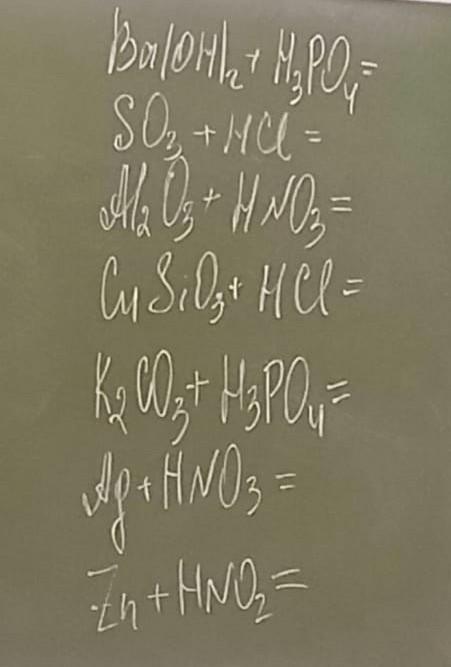 Ba(OH)₂ + H₃PO₄ =
SO₃ + HCl =
Al₂O₃ + HNO₃ =
CuSiO₃ + HCl =
K₂CO₃ + H₃PO₄ =
Ag + HNO₃ =
Zn + HNO₂ =